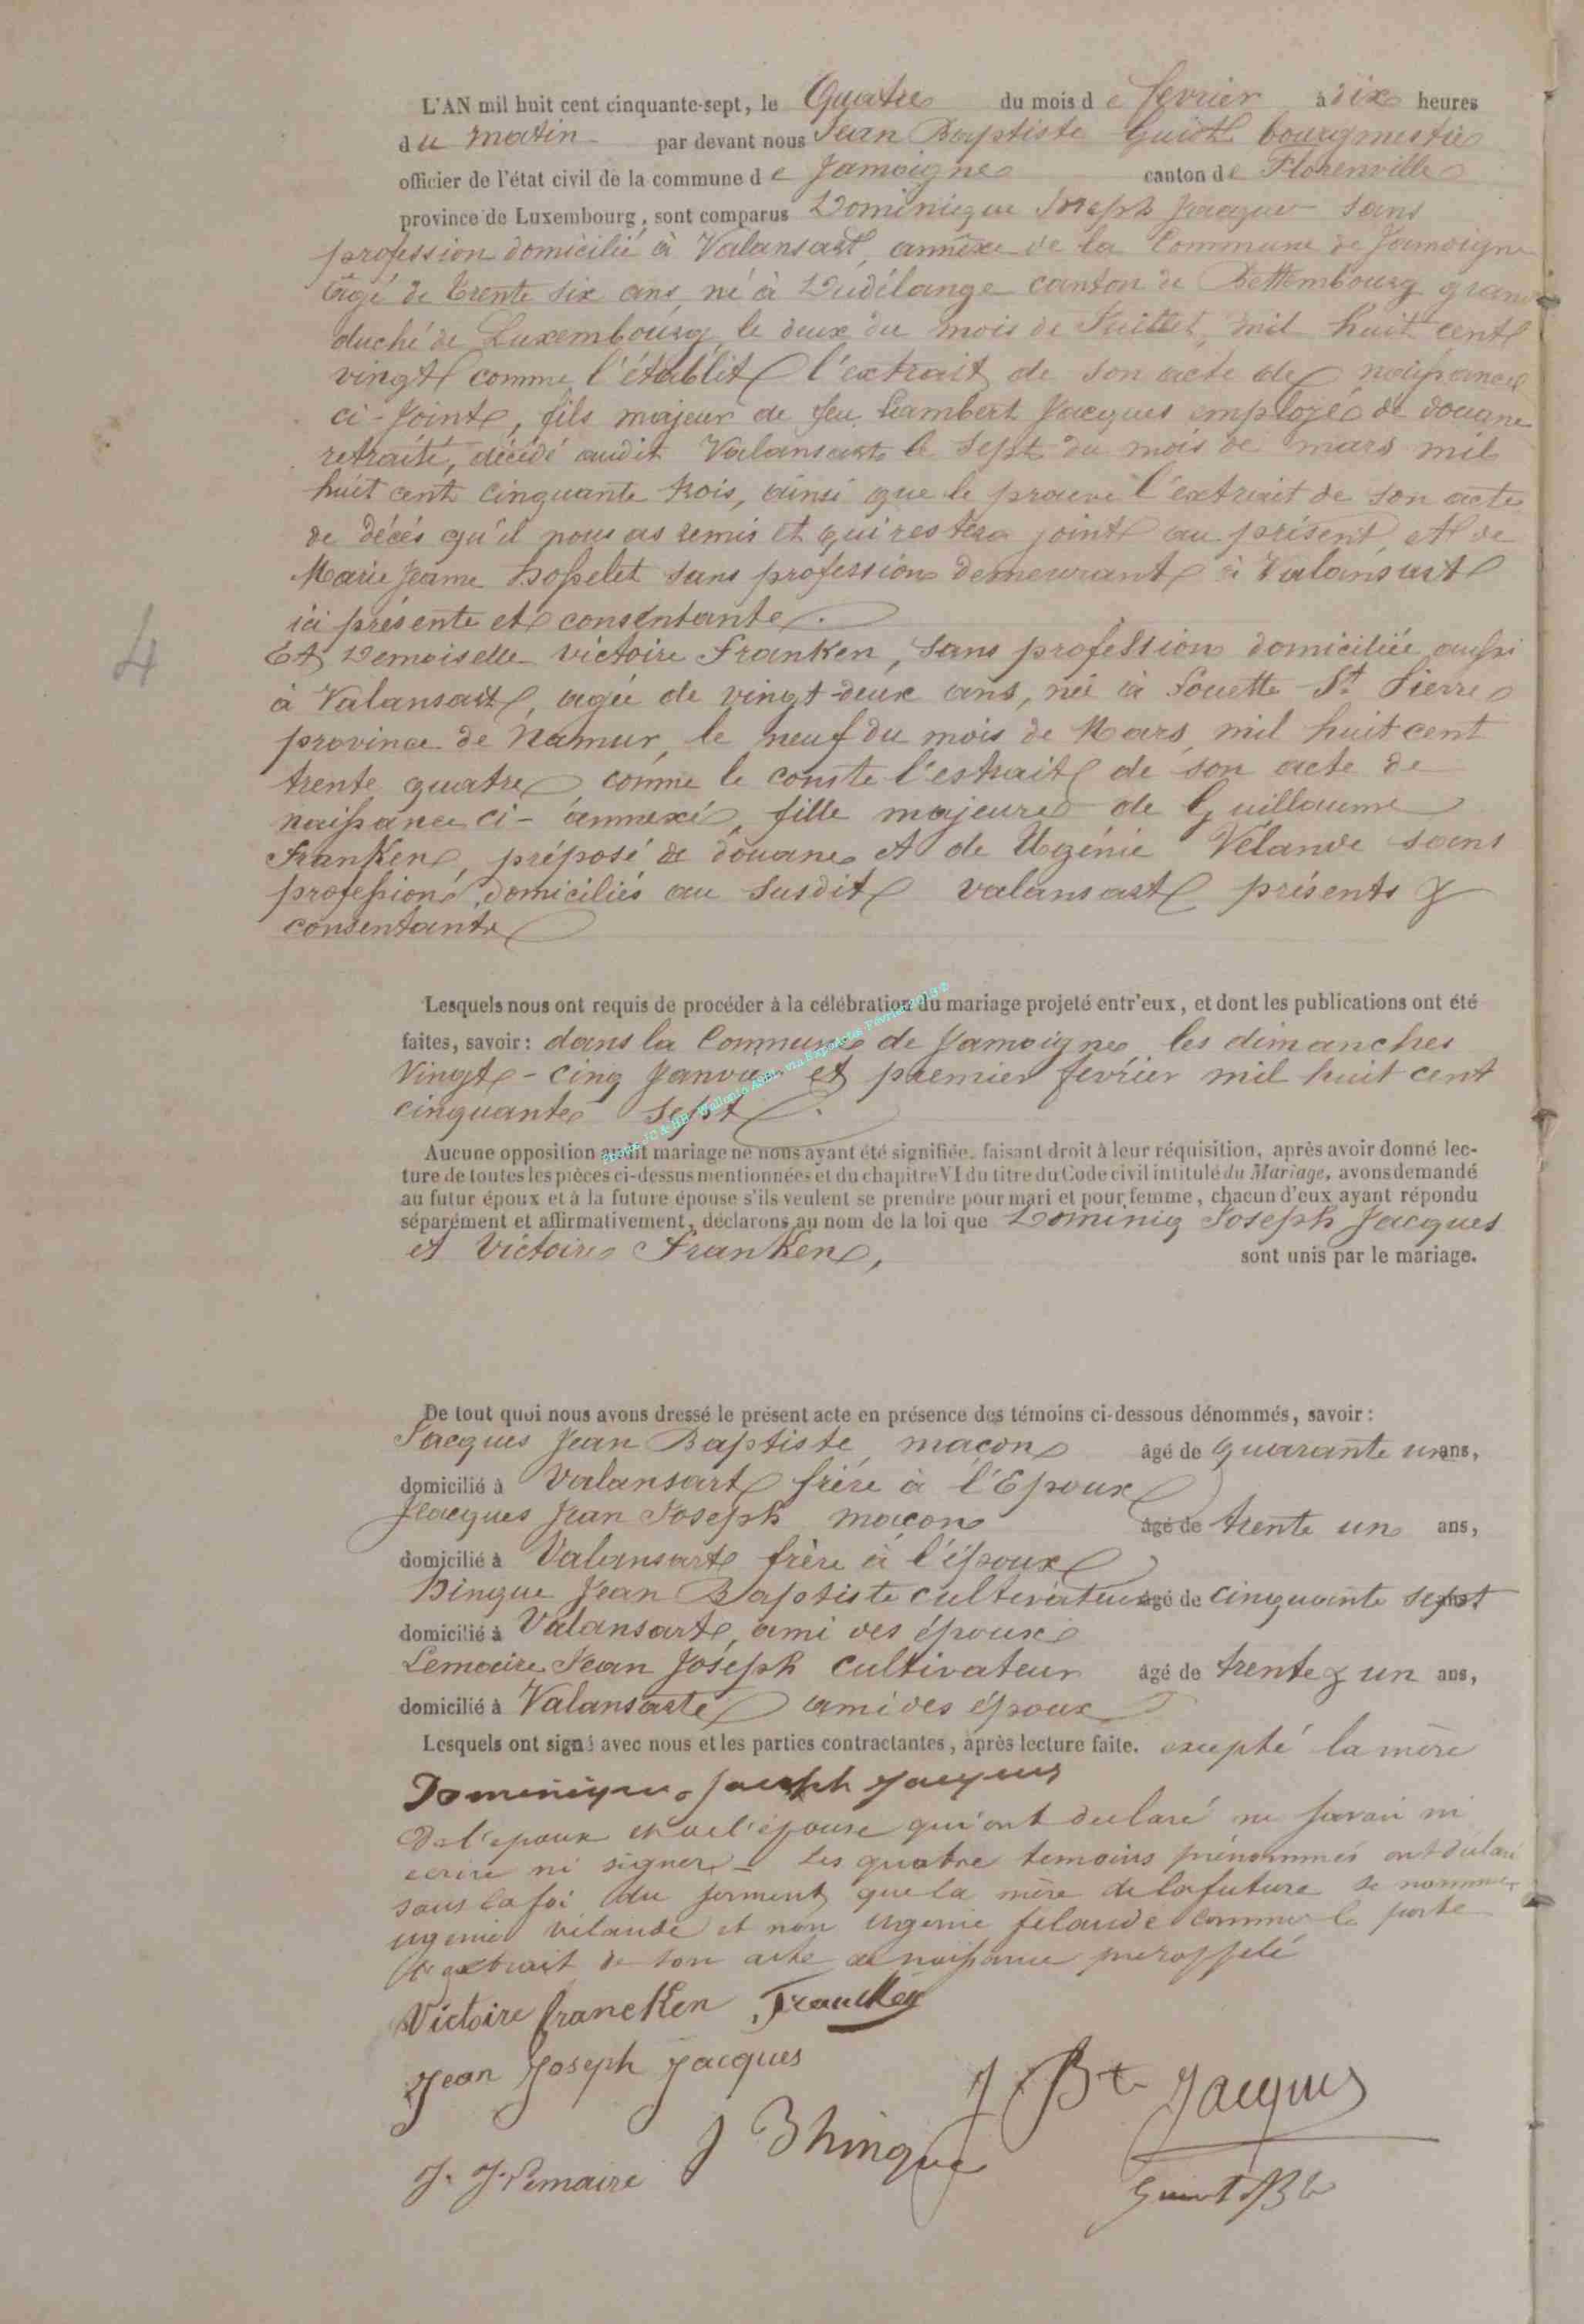 L'AN mil huit cent cinquante-sept, le Quatre du mois de fevrier à dix heures
du matin par devant nous Jean Baptiste Guiot bourgmestre
officier de l'état civil de la commune de Jamoigne canton de Florenville
province de Luxembourg, sont comparus Dominique Joseph Jacques sans
profession domicilié à Valansart, annèxe de la Commune de Jamoigne
âgé de trente six ans, né à Dudélange canton de Bettembourg grand
duché de Luxembourg, le deux du mois de Juillet, mil huit cent
vingt comme l'établit l'extrait de son acte de naissance
ci-joint, fils majeur de feu Lambert Jacques employé de douane
retraité, décédé audit Valansart le sept du mois de mars mil
huit cent cinquante trois, ainsi que le prouve l'extrait de son acte
de décés qu'il nous as remis et qui restera joint au présent, et de
Marie Jeanne Hosselet sans profession demeurant à Valansart
ici présente et consentante.
4
Et Demoiselle Victoire Franken, sans profession domiciliée aussi
à Valansart, agée de vingt-deux ans, née à Louette St Pierre
province de Namur, le neuf du mois de Mars, mil huit cent
trente quatre comme le conste l'estrait de son acte de
naissance ci-annexé, fille majeure de Guillaume
Franken, préposé de douane et de Ugénie Vélande sans
profession, domiciliés au susdit valansart présents &
consentants
Lesquels nous ont requis de procéder à la célébration du mariage projeté entr'eux, et dont les publications ont été
faites, savoir: dans la Commune de Jamoigne les dimanches
Vingt-cinq Janvier et premier fevrier mil huit cent
cinquante sept.
Aucune opposition audit mariage ne nous ayant été signifiée, faisant droit à leur réquisition, après avoir donné lec-
ture de toutes les pièces ci-dessus mentionnées et du chapitre VI du titre du Code civil intitulé du Mariage, avons demandé
au futur époux et à la future épouse s'ils veulent se prendre pour mari et pour femme, chacun d'eux ayant répondu
séparément et affirmativement, déclarons au nom de la loi que Dominiq Joseph Jacques
et Victoire Franken, sont unis par le mariage.
De tout quoi nous avons dressé le présent acte en présence des témoins ci-dessous dénommés, savoir:
Jacques Jean Baptiste maçon âgé de quarante un ans,
domicilié à Valansart frère à l'Epoux
Jacques Jean Joseph maçon âgé de trente un ans,
domicilié à Valansart frère à l'époux
Hinque Jean Baptiste cultivateur âgé de cinquante sept
domicilié à Valansart, ami des époux
Lemaire Jean Joseph cultivateur âgé de trente & un ans,
domicilié à Valansarte ami des époux
Lesquels ont signé avec nous et les parties contractantes, après lecture faite. excepté la mère
Dominique Joseph Jacques
de l'epoux et de l'épouse qui ont declaré ne savoir ni
ecrire ni signer - Les quatre temoins prénommés ont déclaré
sous la foi du serment que la mère de la future se nomme
ugenie vélande et non ugenie felande comme le porte
l'extrait de son acte de naissance prérappelé
Victoire francken Francken
Jean Joseph Jacques
J Bte Jacques
J B hinque
J. J. Lemaire
Guiot J B